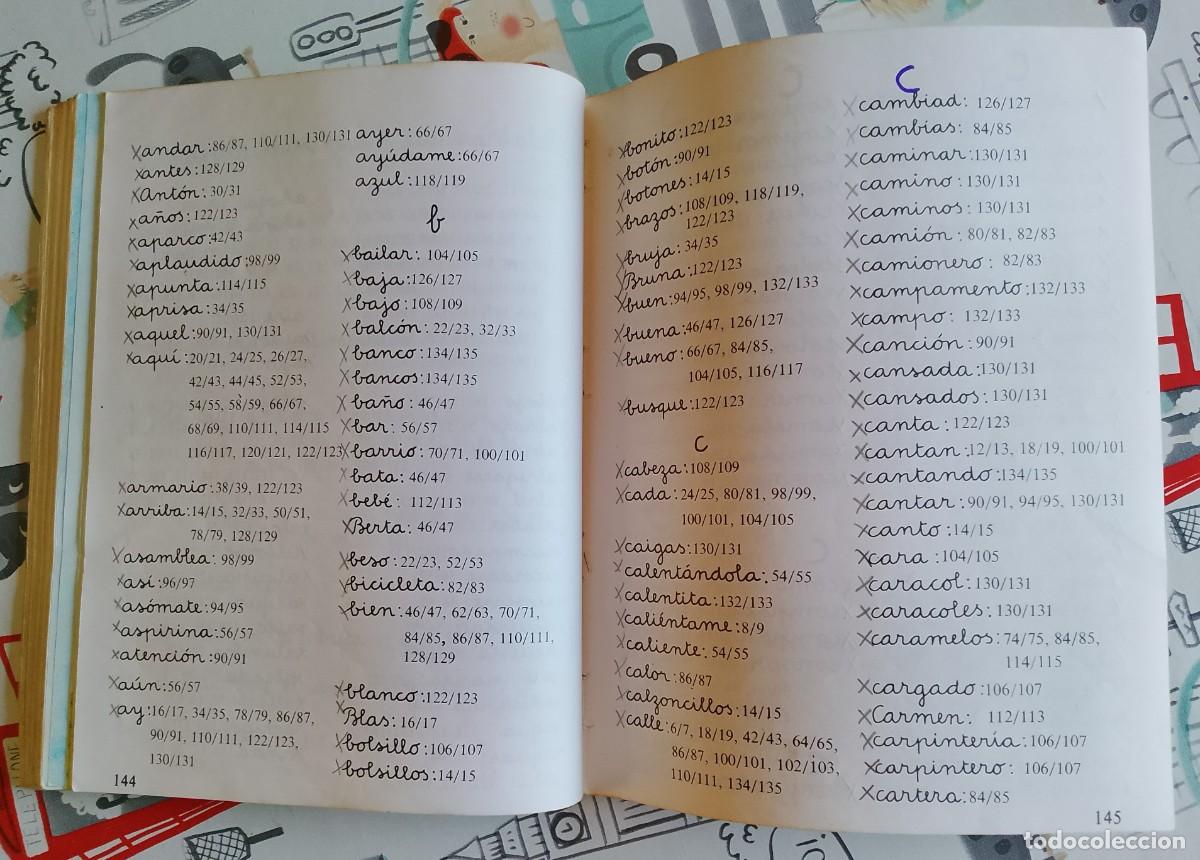 xandar: 86/87, 110/111, 130/131
xantes: 128/129
xAntón: 30/31
xaños: 122/123
xaparco: 42/43
xaplaudido: 98/99
xapunta: 114/115
xaprisa: 34/35
xaquel: 90/91, 130/131
xaquí: 20/21, 24/25, 26/27,
42/43, 44/45, 52/53,
54/55, 58/59, 66/67,
68/69, 110/111, 114/115
116/117, 120/121, 122/123
xarmario: 38/39, 122/123
xarriba: 14/15, 32/33, 50/51,
78/79, 128/129
xasamblea: 98/99
xasí: 96/97
xasómate: 94/95
xaspirina: 56/57
xatención: 90/91
xaún: 56/57
xay: 16/17, 34/35, 78/79, 86/87,
90/91, 110/111, 122/123,
130/131
144
ayer: 66/67
ayúdame: 66/67
azul: 118/119
b
xbailar: 104/105
xbaja: 126/127
xbajo: 108/109
xbalcón: 22/23, 32/33
xbanco: 134/135
xbancos: 134/135
xbaño: 46/47
xbar: 56/57
xbarrio: 70/71, 100/101
xbata: 46/47
xbebé: 112/113
xBerta: 46/47
xbeso: 22/23, 52/53
xbicicleta: 82/83
xbien: 46/47, 62/63, 70/71,
84/85, 86/87, 110/111,
128/129
xblanco: 122/123
xBlas: 16/17
xbolsillo: 106/107
xbolsillos: 14/15
xbonito: 122/123
xbotón: 90/91
xbotones: 14/15
xbrazos: 108/109, 118/119,
122/123
xbruja: 34/35
xBruna: 122/123
xbuen: 94/95, 98/99, 132/133
xbuena: 46/47, 126/127
xbueno: 66/67, 84/85,
104/105, 116/117
xbusque: 122/123
c
xcabeza: 108/109
xcada: 24/25, 80/81, 98/99,
100/101, 104/105
xcaigas: 130/131
xcalentándola: 54/55
xcalentita: 132/133
xcaliéntame: 8/9
xcaliente: 54/55
xcalor: 86/87
xcalzoncillos: 14/15
xcalle: 6/7, 18/19, 42/43, 64/65,
86/87, 100/101, 102/103,
110/111, 134/135
C
xcambiad: 126/127
xcambias: 84/85
xcaminar: 130/131
xcamino: 130/131
xcaminos: 130/131
xcamión: 80/81, 82/83
xcamionero: 82/83
xcampamento: 132/133
xcampo: 132/133
xcanción: 90/91
xcansada: 130/131
xcansados: 130/131
xcanta: 122/123
xcantan: 12/13, 18/19, 100/101
xcantando: 134/135
xcantar: 90/91, 94/95, 130/131
xcanto: 14/15
xcara: 104/105
xcaracol: 130/131
xcaracoles: 130/131
xcaramelos: 74/75, 84/85,
114/115
xcargado: 106/107
xCarmen: 112/113
xcarpintería: 106/107
xcarpintero: 106/107
xcartera: 84/85
145
todocoleccion